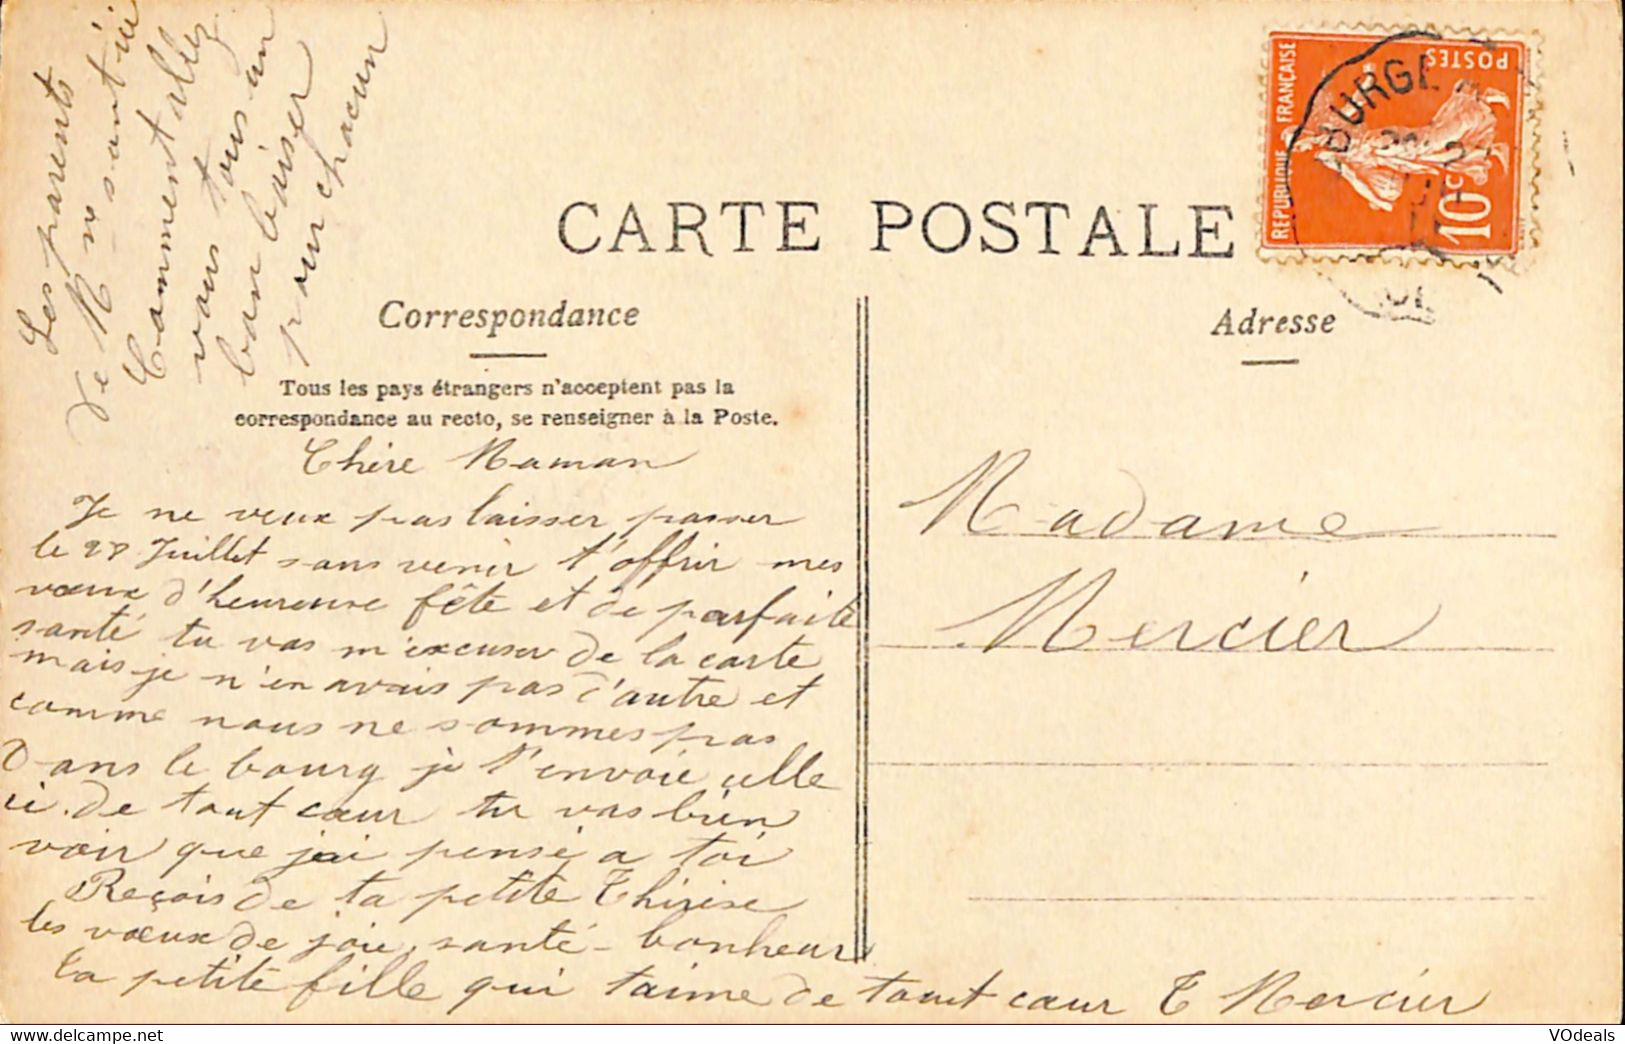 CARTE POSTALE
Correspondance
Adresse
Tous les pays étrangers n'acceptent pas la
correspondance au recto, se renseigner à la Poste.
Chère Maman
Je ne veux pas laisser passer
le 28 Juillet sans venir t'offrir mes
vœux d'heureuse fête et de parfaite
santé tu vas m'excuser de la carte
mais je n'en avais pas d'autre et
comme nous ne sommes pas
Dans le bourg je t'envoie celle
ci. de tout cœur tu vas bien
voir que j'ai pensé a toi
Reçois de ta petite Thérèse
les vœux de joie, santé - bonheur
ta petite fille qui t'aime de tout cœur T Mercier
Les parents
de M
vous tous un
bon baiser
pour chacun
Madame
Mercier
REPUBLIQUE FRANÇAISE
POSTES
10c
VOdeals